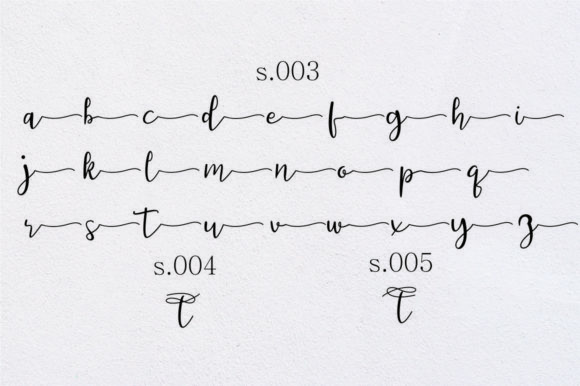 s.003
a b c d e f g h i
j k l m n o p q
r s t u v w x y z
s.004 s.005
t t